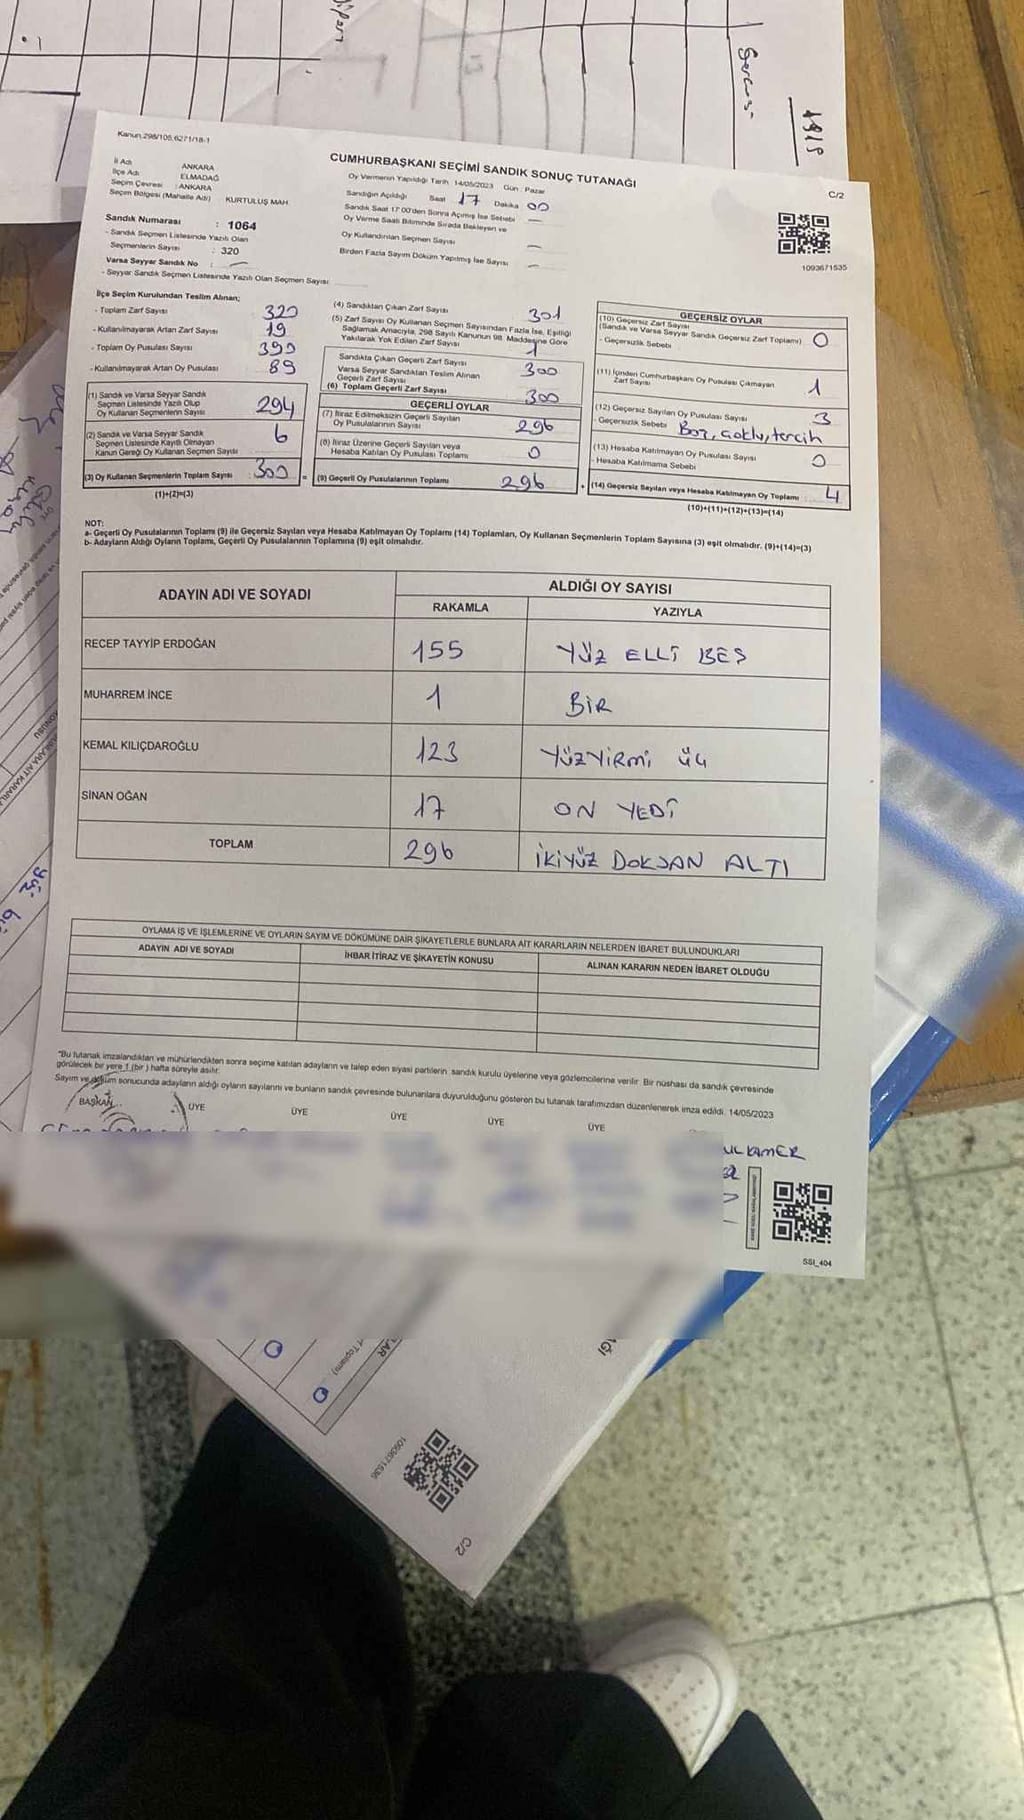 Kanun:298/105,6271/18-1
CUMHURBAŞKANI SEÇİMİ SANDIK SONUÇ TUTANAĞI
C/2
İl Adı ANKARA
İlçe Adı ELMADAĞ
Seçim Çevresi : ANKARA
Seçim Bölgesi (Mahalle Adı) KURTULUŞ MAH.
Sandık Numarası : 1064
- Sandık Seçmen Listesinde Yazılı Olan
Seçmenlerin Sayısı : 320
Varsa Seyyar Sandık No : —
- Seyyar Sandık Seçmen Listesinde Yazılı Olan Seçmen Sayısı
Oy Vermenin Yapıldığı Tarih 14/05/2023 Gün : Pazar
Sandığın Açıldığı Saat 17 Dakika 00
Sandık Saat 17:00'den Sonra Açılmış İse Sebebi —
Oy Verme Saati Bitiminde Sırada Bekleyen ve
Oy Kullandırılan Seçmen Sayısı —
Birden Fazla Sayım Döküm Yapılmış İse Sayısı —
1093671535
İlçe Seçim Kurulundan Teslim Alınan;
- Toplam Zarf Sayısı 320
- Kullanılmayarak Artan Zarf Sayısı 19
- Toplam Oy Pusulası Sayısı 390
- Kullanılmayarak Artan Oy Pusulası 89
(1) Sandık ve Varsa Seyyar Sandık
Seçmen Listesinde Yazılı Olup
Oy Kullanan Seçmenlerin Sayısı 294
(2) Sandık ve Varsa Seyyar Sandık
Seçmen Listesinde Kayıtlı Olmayan
Kanun Gereği Oy Kullanan Seçmen Sayısı 6
(3) Oy Kullanan Seçmenlerin Toplam Sayısı 300 =
(1)+(2)=(3)
(4) Sandıktan Çıkan Zarf Sayısı 301
(5) Zarf Sayısı Oy Kullanan Seçmen Sayısından Fazla İse, Eşitliği
Sağlamak Amacıyla, 298 Sayılı Kanunun 98. Maddesine Göre
Yakılarak Yok Edilen Zarf Sayısı 1
Sandıkta Çıkan Geçerli Zarf Sayısı 300
Varsa Seyyar Sandıktan Teslim Alınan
Geçerli Zarf Sayısı
(6) Toplam Geçerli Zarf Sayısı 300
GEÇERLİ OYLAR
(7) İtiraz Edilmeksizin Geçerli Sayılan
Oy Pusulasının Sayısı 296
(8) İtiraz Üzerine Geçerli Sayılan veya
Hesaba Katılan Oy Pusulası Toplamı 0
(9) Geçerli Oy Pusulalarının Toplamı 296 +
GEÇERSİZ OYLAR
(10) Geçersiz Zarf Sayısı
(Sandık ve Varsa Seyyar Sandık Geçersiz Zarf Toplamı) 0
- Geçersizlik Sebebi
(11) İçinden Cumhurbaşkanı Oy Pusulası Çıkmayan
Zarf Sayısı 1
(12) Geçersiz Sayılan Oy Pusulası Sayısı 3
- Geçersizlik Sebebi Boş, çoklu, tercih
(13) Hesaba Katılmayan Oy Pusulası Sayısı 0
- Hesaba Katılmama Sebebi
(14) Geçersiz Sayılan veya Hesaba Katılmayan Oy Toplamı 4
(10)+(11)+(12)+(13)=(14)
NOT:
a- Geçerli Oy Pusulalarının Toplamı (9) ile Geçersiz Sayılan veya Hesaba Katılmayan Oy Toplamı (14) Toplamları, Oy Kullanan Seçmenlerin Toplam Sayısına (3) eşit olmalıdır. (9)+(14)=(3)
b- Adayların Aldığı Oyların Toplamı, Geçerli Oy Pusulalarının Toplamına (9) eşit olmalıdır.
ADAYIN ADI VE SOYADI
ALDIĞI OY SAYISI
RAKAMLA YAZIYLA
RECEP TAYYİP ERDOĞAN 155 YÜZ ELLİ BEŞ
MUHARREM İNCE 1 BİR
KEMAL KILIÇDAROĞLU 123 YÜZYİRMİ ÜÇ
SİNAN OĞAN 17 ON YEDİ
TOPLAM 296 İKİYÜZ DOKSAN ALTI
OYLAMA İŞ VE İŞLEMLERİNE VE OYLARIN SAYIM VE DÖKÜMÜNE DAİR ŞİKAYETLERLE BUNLARA AİT KARARLARIN NELERDEN İBARET BULUNDUKLARI
ADAYIN ADI VE SOYADI İHBAR İTİRAZ VE ŞİKAYETİN KONUSU ALINAN KARARIN NEDEN İBARET OLDUĞU
"Bu tutanak imzalandıktan ve mühürlendikten sonra seçime katılan adayların ve talep eden siyasi partilerin sandık kurulu üyelerine veya gözlemcilerine verilir. Bir nüshası da sandık çevresinde
görülecek bir yere 1 (bir) hafta süreyle asılır.
Sayım ve döküm sonucunda adayların aldığı oyların sayılarını ve bunların sandık çevresinde bulunanlara duyurulduğunu gösteren bu tutanak tarafımızdan düzenlenerek imza edildi. 14/05/2023
BAŞKAN ÜYE ÜYE ÜYE ÜYE ÜYE
SSI_404
1093671536
C/2